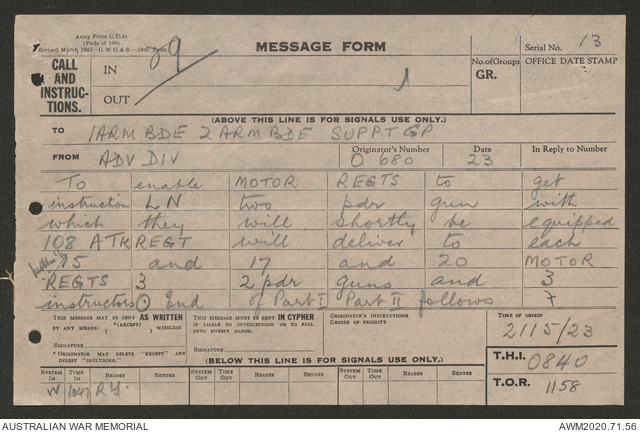 Army Form C.2136
(Pads of 100)
Revised March 1942—G.W.G.&S.—100 Pads
89
MESSAGE FORM
Serial No. 13
CALL AND INSTRUCTIONS.
IN
OUT
No. of Groups
GR.
OFFICE DATE STAMP
(ABOVE THIS LINE IS FOR SIGNALS USE ONLY.)
TO 1 ARM BDE 2 ARM BDE SUPPT GP
FROM ADV DIV
Originator's Number O 680
Date 23
In Reply to Number
To enable MOTOR REGTS to get
instruction LN two pdr gun with
which they will shortly be equipped
108 ATK REGT will deliver to each
15 and 17 and 20 MOTOR
REGTS 3 2 pdr guns and 3
instructors End of Part I Part II follows
THIS MESSAGE MAY BE SENT AS WRITTEN
BY ANY MEANS. (EXCEPT) ( ) WIRELESS
SIGNATURE
* ORIGINATOR MAY DELETE "EXCEPT" AND INSERT "INCLUDING."
THIS MESSAGE MUST BE SENT IN CIPHER
IF LIABLE TO INTERCEPTION OR TO FALL INTO ENEMY HANDS.
SIGNATURE
ORIGINATOR'S INSTRUCTIONS
DEGREE OF PRIORITY
TIME OF ORIGIN
2115/23
(BELOW THIS LINE IS FOR SIGNALS USE ONLY.)
T.H.I. 0840
T.O.R. 1158
SYSTEM IN TIME IN READER SENDER SYSTEM OUT TIME OUT READER SENDER SYSTEM OUT TIME OUT READER SENDER
W 1047
AUSTRALIAN WAR MEMORIAL
AWM2020.71.56